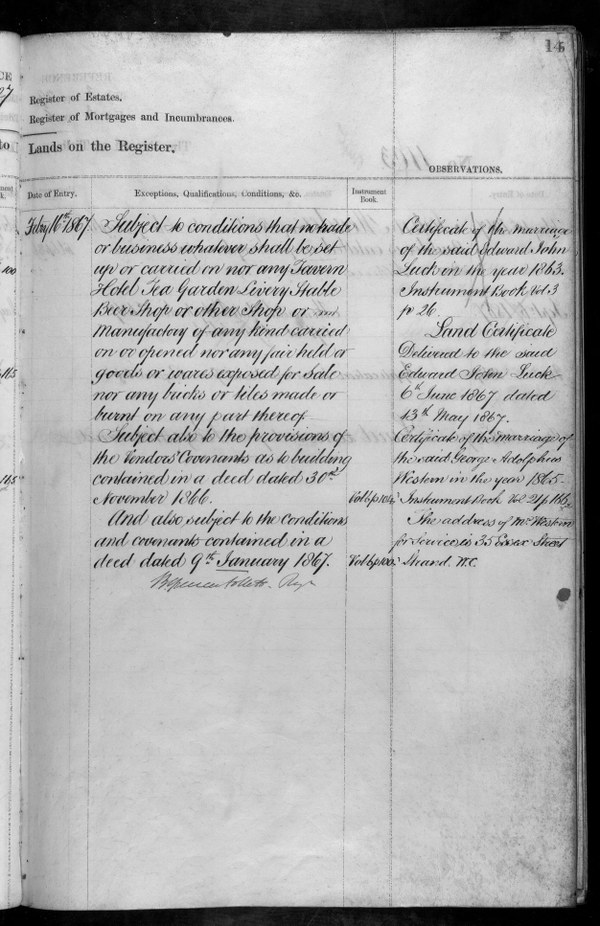 14
Register of Estates.
Register of Mortgages and Incumbrances.
Lands on the Register.
OBSERVATIONS.
Date of Entry.
Exceptions, Qualifications, Conditions, &c.
Instrument Book.
Feby 11th 1867
Subject to conditions that no trade
or business whatever shall be set
up or carried on nor any Tavern
Hotel Tea Garden Livery Stable
Beer Shop or other Shop or
Manufactory of any kind carried
on or opened nor any fair held or
goods or wares exposed for sale
nor any bricks or tiles made or
burnt on any part thereof
Subject also to the provisions of
the Vendors' Covenants as to building
contained in a deed dated 30th
November 1866.
Vol 6 p 104
And also subject to the conditions
and covenants contained in a
deed dated 9th January 1867.
Vol 6 p 100
Regr
Certificate of the marriage
of the said Edward John
Luck in the year 1863.
Instrument Book Vol 3
p 26.
Land Certificate
Delivered to the said
Edward John Luck
6th June 1867 dated
13th May 1867.
Certificate of the marriage of
the said George Adolphus
Western in the year 1865
Instrument Book Vol 24 p
The address of Mr Western
for Service is 35 Essex Street
Strand. W.C.